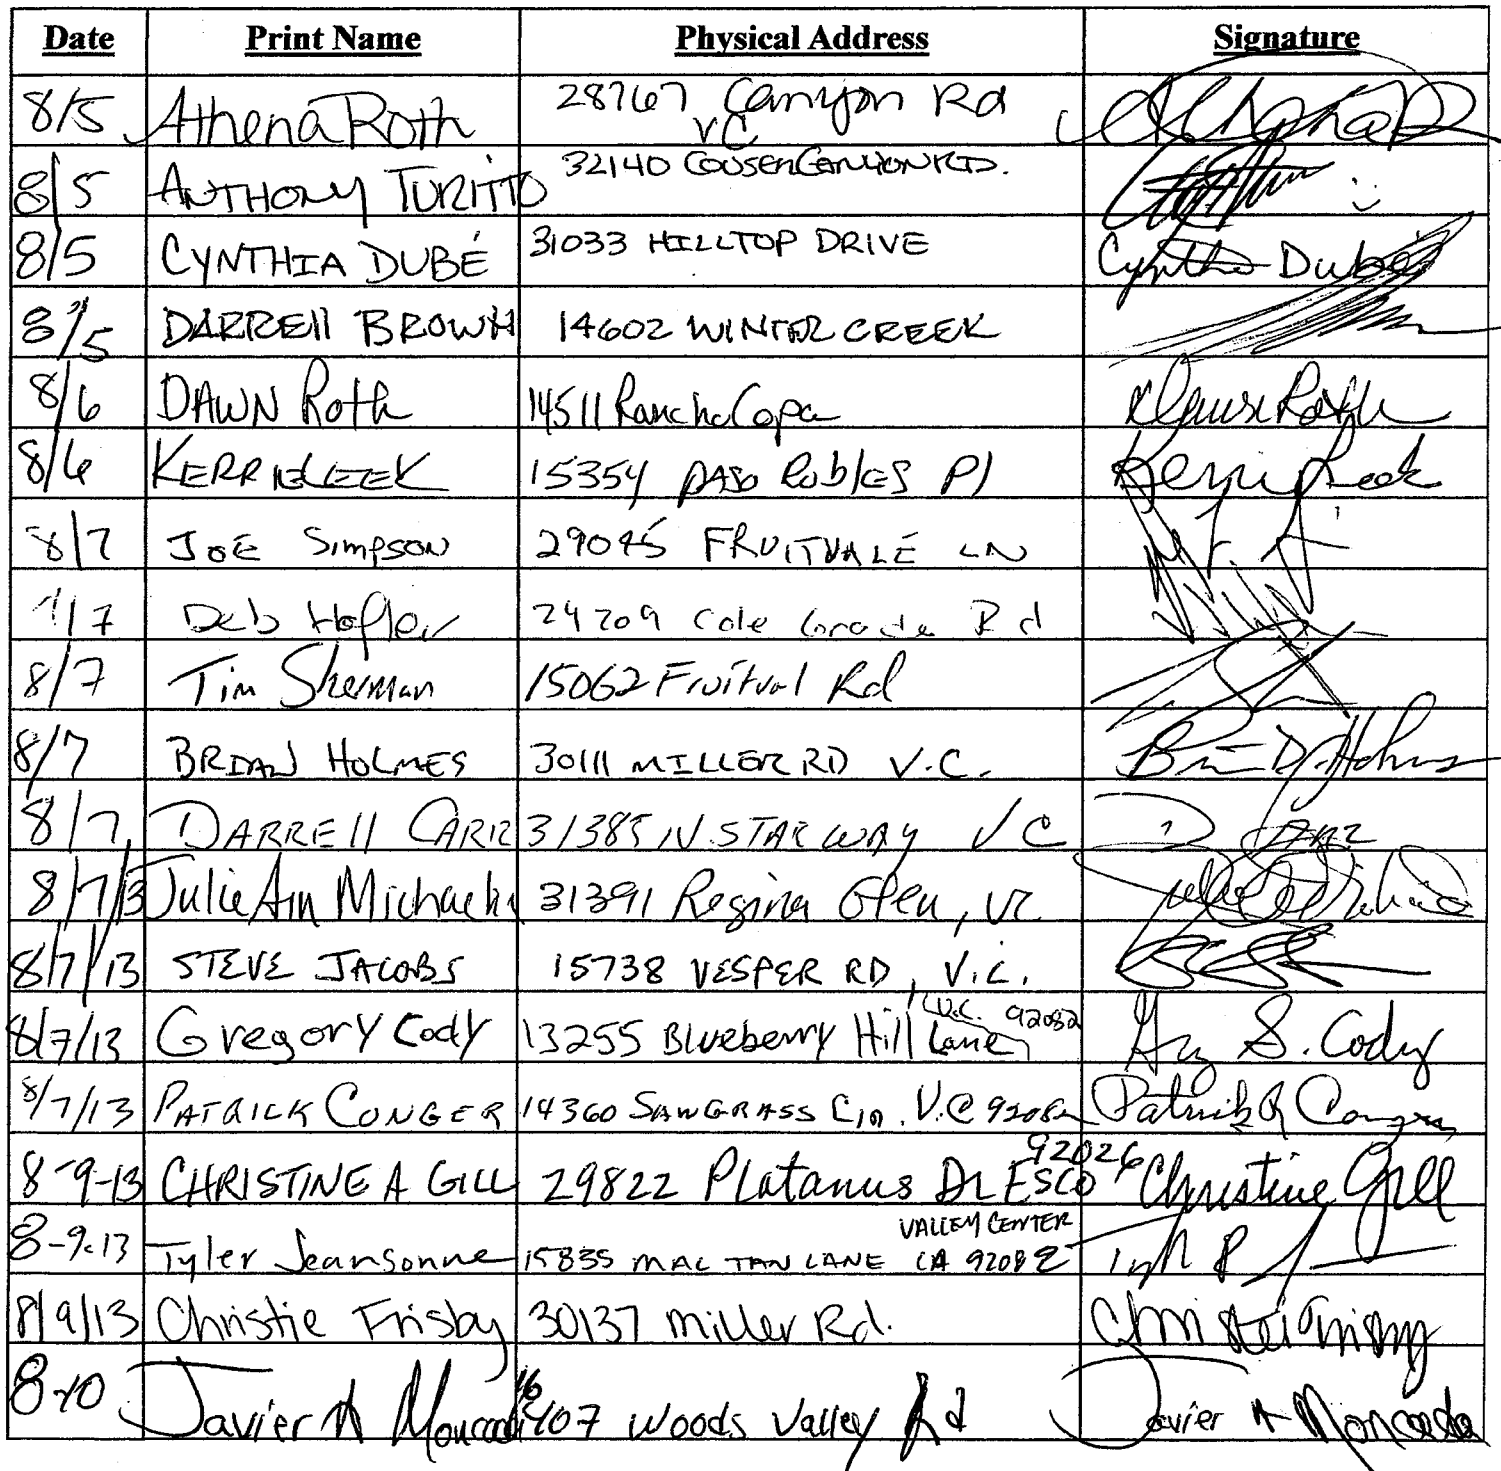 Date Print Name Physical Address Signature
8/5 Athena Roth 28767 Canyon Rd
VC
8/5 ANTHONY TURITTO 32140 COUSER CANYON RD.
8/5 CYNTHIA DUBÉ 31033 HILLTOP DRIVE Cynthia Dubé
8/5 DARRELL BROWN 14602 WINTER CREEK
8/6 DAWN Roth 14511 Rancho Copa Roth
8/6 KERRIE LEEK 15354 PASO RoblES Pl Kerrie Leek
8/7 JOE SIMPSON 29045 FRUITVALE LN
/7 Deb Hofler Cole Grade Rd
8/7 Tim Sherman 15062 Fruitval Rd
8/7 BRIAN HOLMES 30111 MILLER RD V.C. Brian D. Holmes
8/7 DARRELL CARR 31385 N. STAR WAY VC D Carr
8/7/13 Julie Ann 31391 Regina Glen, VC
8/7/13 STEVE JACOBS 15738 VESPER RD, V.C.
8/7/13 Gregory Cody 13255 Blueberry Hill Lane V.C. 92082 S. Cody
8/7/13 PATRICK CONGER 14360 SAWGRASS CIR. V.C 92082 Patrick Conger
8-9-13 CHRISTINE A GILL 29822 Platanus Dr ESCO 92026 Christine Gill
8-9-13 Tyler Jeansonne 15835 MAC TAN LANE VALLEY CENTER CA 92082
8/9/13 Christie Frisby 30137 Miller Rd. Christie Frisby
8-10 Javier A Moncada 16407 Woods Valley Rd Javier A Moncada